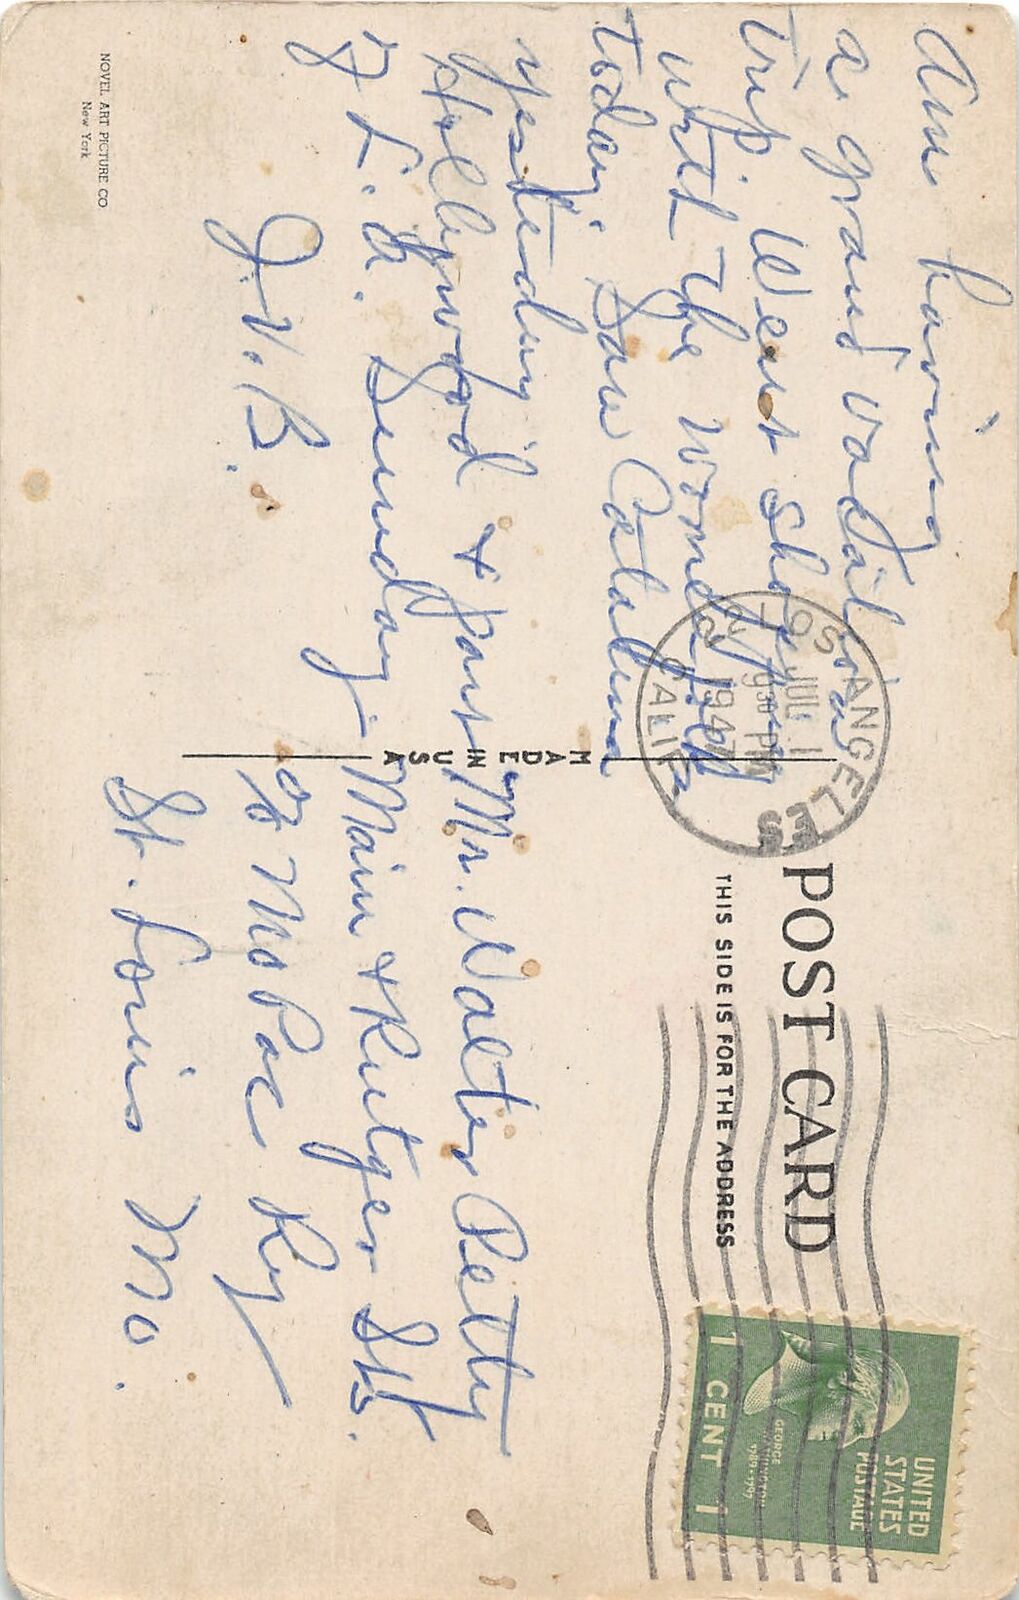 Am having
a grand vacation
trip. Went shopping
with the
today. Saw Catalina
yesterday
Hollywood & part
of L.A. Sunday
J.V.B.
NOVEL ART PICTURE CO
New York
MADE IN USA
LOS ANGELES
JUL 1
9 30 PM
1947
CALIF.
POST CARD
THIS SIDE IS FOR THE ADDRESS
UNITED
STATES
POSTAGE
GEORGE
WASHINGTON
1789-1797
1 CENT 1
Mr. Walter Petty
Main & Rutger Sts.
% Mo Pac Ry
St. Louis Mo.